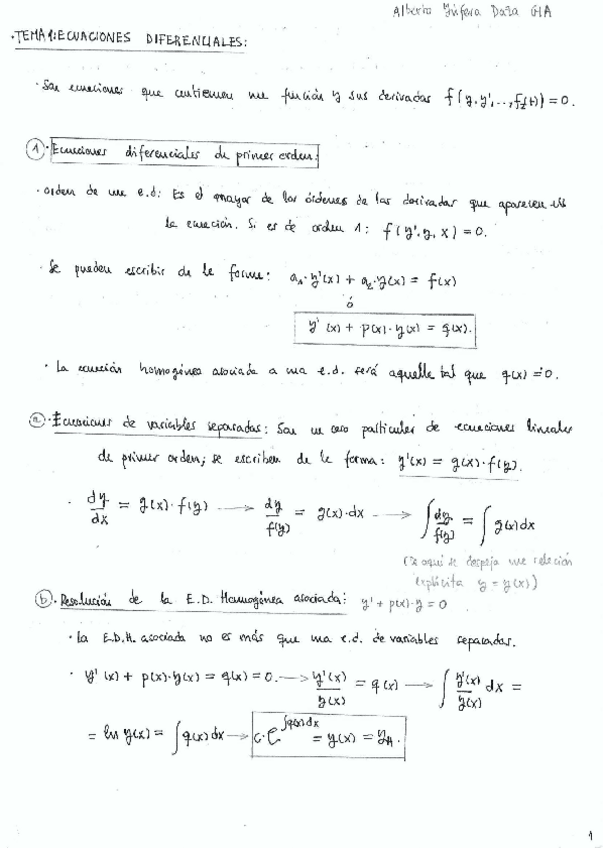 Alberto Yúfera Daza GIA
·TEMA1:ECUACIONES DIFERENCIALES:
· Son ecuaciones que contienen una función y sus derivadas f(y,y',..,f(t))=0.
① Ecuaciones diferenciales de primer orden:
· orden de una e.d: Es el mayor de los órdenes de las derivadas que aparecen en
la ecuación. Si es de orden 1: f(y',y,x)=0.
· Se pueden escribir de la forma: a₁·y'(x) + a₂·y(x) = f(x)
ó
y'(x) + p(x)·y(x) = q(x).
· La ecuación homogénea asociada a una e.d. será aquella tal que q(x)=0.
ⓐ·Ecuaciones de variables separadas: Son un caso particular de ecuaciones lineales
de primer orden; se escriben de la forma: y'(x) = g(x)·f(y).
· dy/dx = g(x)·f(y) → dy/f(y) = g(x)·dx → ∫dy/f(y) = ∫g(x)dx
(De aquí se despeja una relación
explícita y = y(x))
ⓑ·Resolución de la E.D. Homogénea asociada: y'+p(x)·y=0
· La E.D.H. asociada no es más que una e.d. de variables separadas.
· y'(x) + p(x)·y(x) = q(x) = 0. → y'(x)/y(x) = q(x) → ∫y'(x)/y(x) dx =
= ln y(x) = ∫q(x)dx → c·e^∫q(x)dx = y(x) = y_H.
1